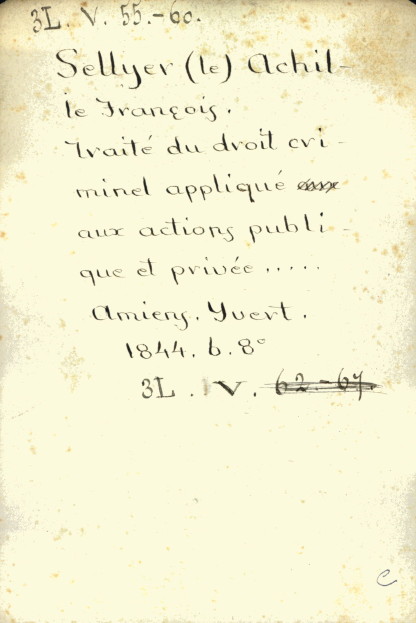 3L. V. 55.-60.
Sellyer (le) Achil-
le François.
Traité du droit cri-
minel appliqué
aux actions publi-
que et privée.....
Amiens. Yvert.
1844. 6. 8°
3L. V. 62.-67.
C